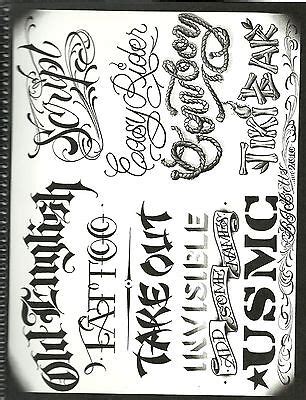 Old English
TATTOO
TAKE OUT
INVISIBLE
ADD SOME NAMES
USMC
Script
Easy Rider
Cowboy
TIKI BAR